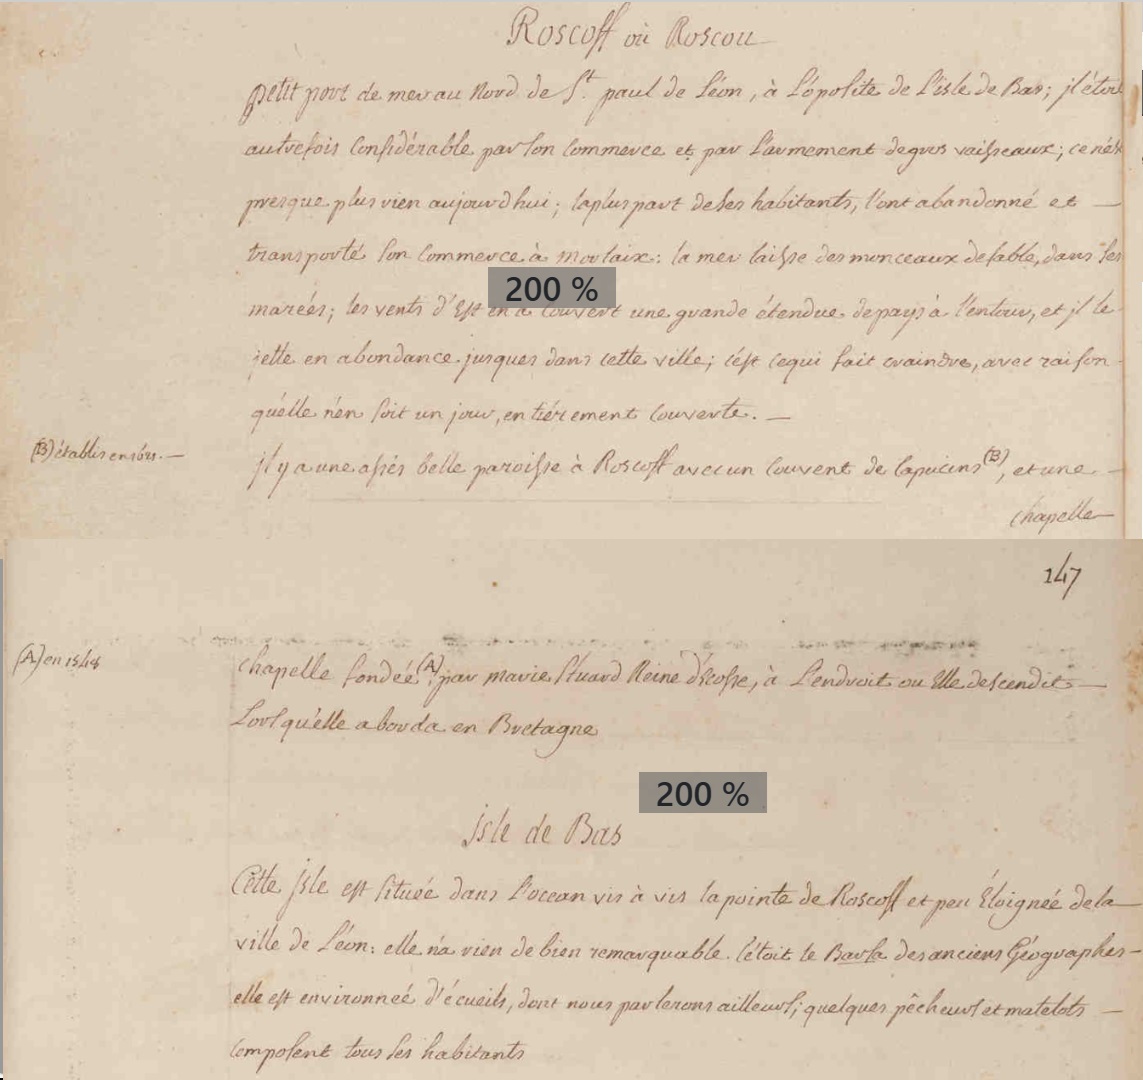 Roscoff ou Roscou
petit port de mer au Nord de St. paul de Léon, à L'oposite de L'isle de Bas; jl étoit
autrefois Considérable par son Commerce et par L'armement de gros vaisseaux; ce n'est
presque plus rien aujourd'hui; la plus part de ses habitants, l'ont abandonné et
transporté son Commerce à Morlaix: la mer laisse des monceaux de sable, dans ses
marées; les vents d'Est en a Couvert une grande étendue de pays à l'entour, et jl le
200 %
jette en abondance jusques dans cette ville; c'est ce qui fait craindre, avec raison
qu'elle n'en soit un jour, entiérement Couverte. —
(B) établis en
jl y a une assés belle paroisse à Roscoff avec un Couvent de Capucins (B), et une
chapelle
147
(A) en 1548
chapelle fondée (A) par marie Stuard Reine d'Ecosse, à L'endroit ou Elle descendit
Lorsqu'elle aborda en Bretagne
200 %
jsle de Bas
Cette jsle est située dans L'ocean vis à vis la pointe de Roscoff et peu Éloignée de la
ville de Léon: elle n'a rien de bien remarquable. C'étoit le Barsa des anciens Géographes
elle est environneé d'écueils, dont nous parlerons ailleurs; quelques pêcheurs et matelots
Composent tous ses habitants